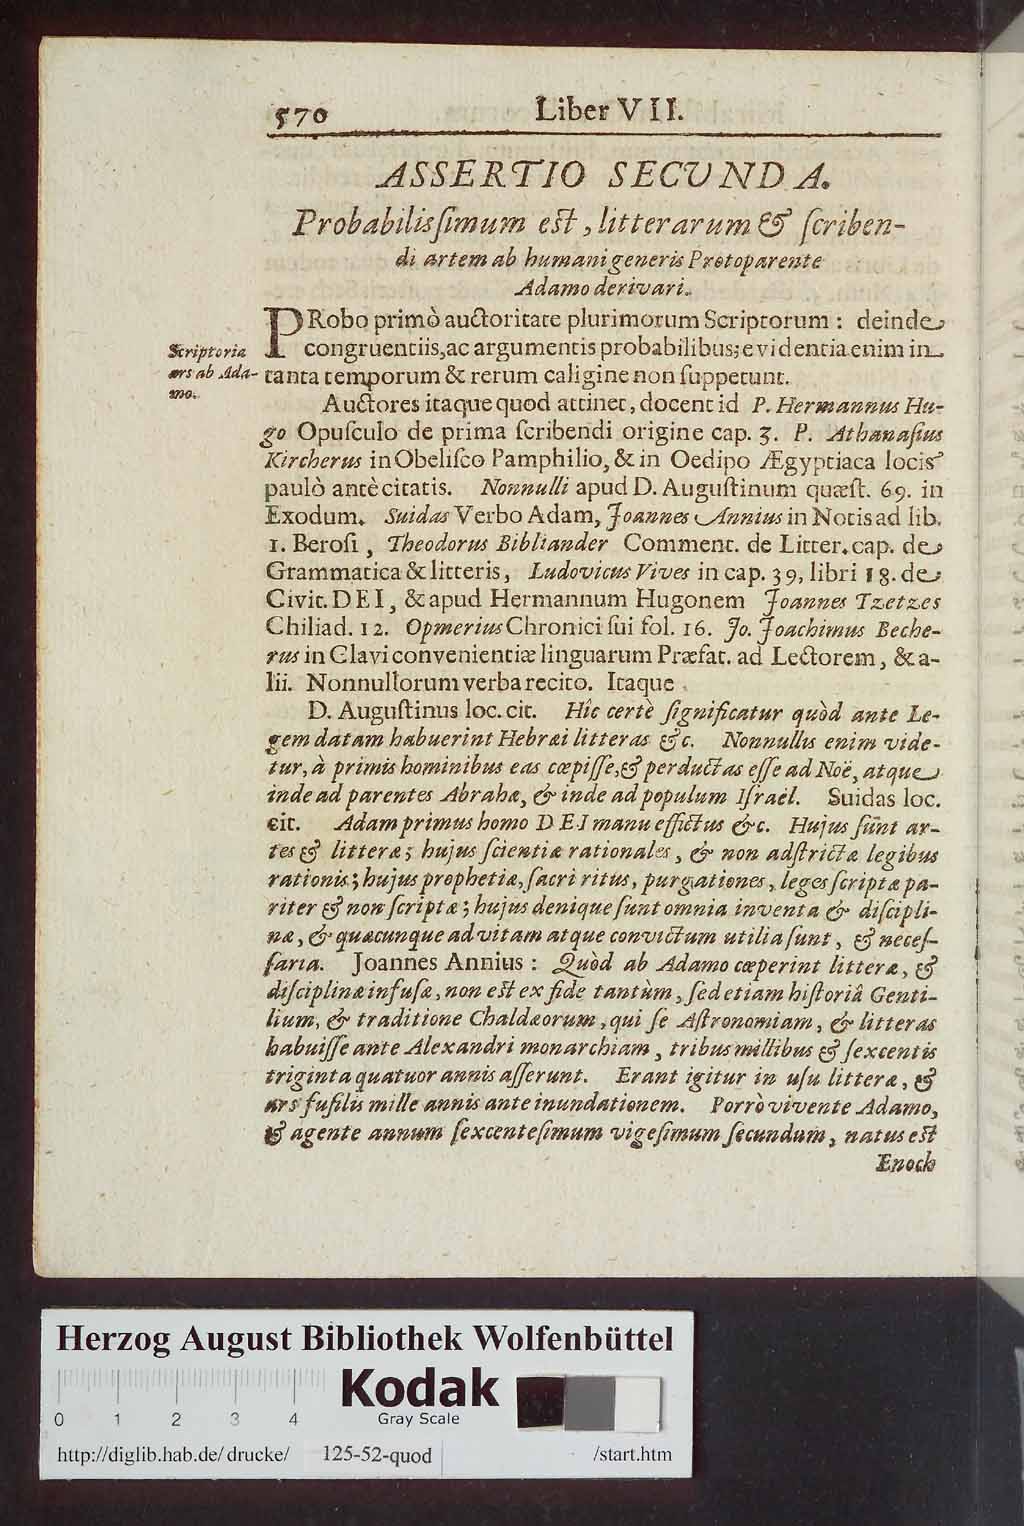 570 Liber VII.
ASSERTIO SECVNDA.
Probabilisſimum eſt, litterarum & ſcriben-
di artem ab humani generis Protoparente
Adamo derivari.
PRobo primò auctoritate plurimorum Scriptorum: deinde
congruentiis, ac argumentis probabilibus; evidentia enim in
tanta temporum & rerum caligine non ſuppetunt.
Scriptoria
ars ab Ada-
mo.
Auctores itaque quod attinet, docent id P. Hermannus Hu-
go Opuſculo de prima ſcribendi origine cap. 3. P. Athanaſius
Kircherus in Obeliſco Pamphilio, & in Oedipo Ægyptiaca locis
paulò antè citatis. Nonnulli apud D. Auguſtinum quæſt. 69. in
Exodum. Suidas Verbo Adam, Joannes Annius in Notis ad lib.
1. Beroſi, Theodorus Bibliander Comment. de Litter. cap. de
Grammatica & litteris, Ludovicus Vives in cap. 39, libri 18. de
Civit. DEI, & apud Hermannum Hugonem Joannes Tzetzes
Chiliad. 12. Opmerius Chronici ſui fol. 16. Jo. Joachimus Beche-
rus in Clavi convenientiæ linguarum Præfat. ad Lectorem, & a-
lii. Nonnullorum verba recito. Itaque
D. Auguſtinus loc. cit. Hîc certè ſignificatur quòd ante Le-
gem datam habuerint Hebræi litteras &c. Nonnullis enim vide-
tur, à primis hominibus eas cœpiſſe, & perductas eſſe ad Noë, atque
inde ad parentes Abrahæ, & inde ad populum Iſraël. Suidas loc.
cit. Adam primus homo DEI manu effictus &c. Hujus ſunt ar-
tes & litteræ; hujus ſcientiæ rationales, & non adſtrictæ legibus
rationis; hujus prophetiæ, ſacri ritus, purgationes, leges ſcriptæ pa-
riter & non ſcriptæ; hujus denique ſunt omnia inventa & diſcipli-
næ, & quæcunque ad vitam atque convictum utilia ſunt, & neceſ-
ſaria. Joannes Annius: Quòd ab Adamo cœperint litteræ, &
diſciplinæ infuſæ, non eſt ex fide tantùm, ſed etiam hiſtoriâ Genti-
lium, & traditione Chaldæorum, qui ſe Aſtronomiam, & litteras
habuiſſe ante Alexandri monarchiam, tribus millibus & ſexcentis
triginta quatuor annis aſſerunt. Erant igitur in uſu litteræ, &
ars fuſilis mille annis ante inundationem. Porrò vivente Adamo,
& agente annum ſexcenteſimum vigeſimum ſecundum, natus eſt
Enoch
Herzog August Bibliothek Wolfenbüttel
Kodak
Gray Scale
0 1 2 3 4
http://diglib.hab.de/drucke/ 125-52-quod /start.htm